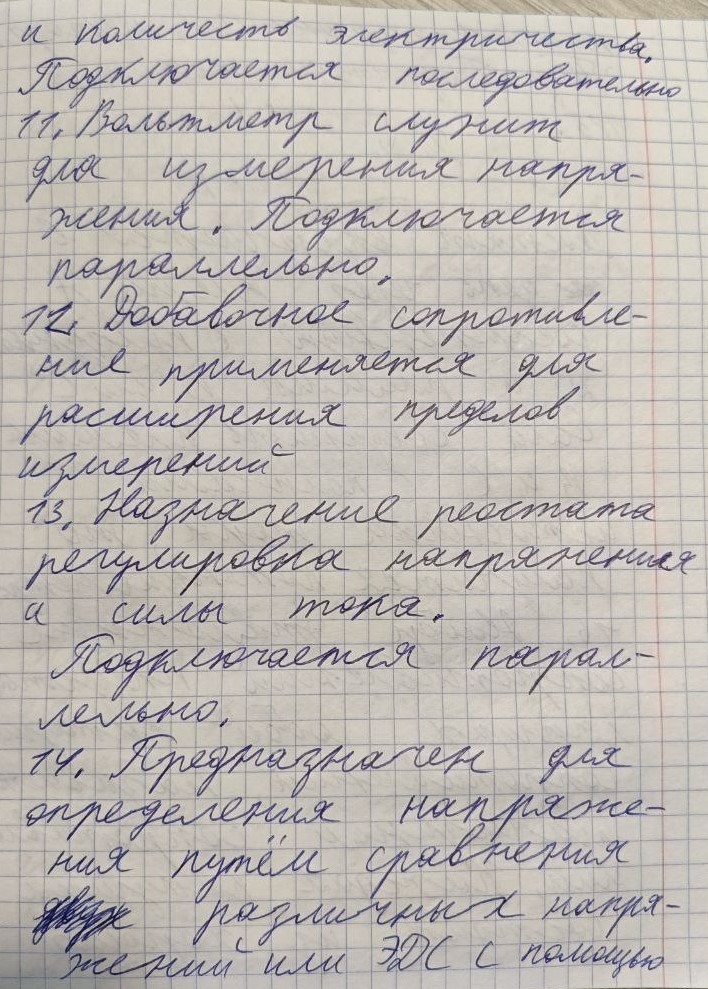 и количеств электричества.
Подключается последовательно
11. Вольтметр служит
для измерения напря-
жения. Подключается
параллельно.
12. Добавочное сопротивле-
ние применяется для
расширения пределов
измерений
13. Назначение реостата
регулировка напряжения
и силы тока.
Подключается парал-
лельно.
14. Предназначен для
определения напряже-
ния путём сравнения
различных напря-
жений или ЭДС с помощью